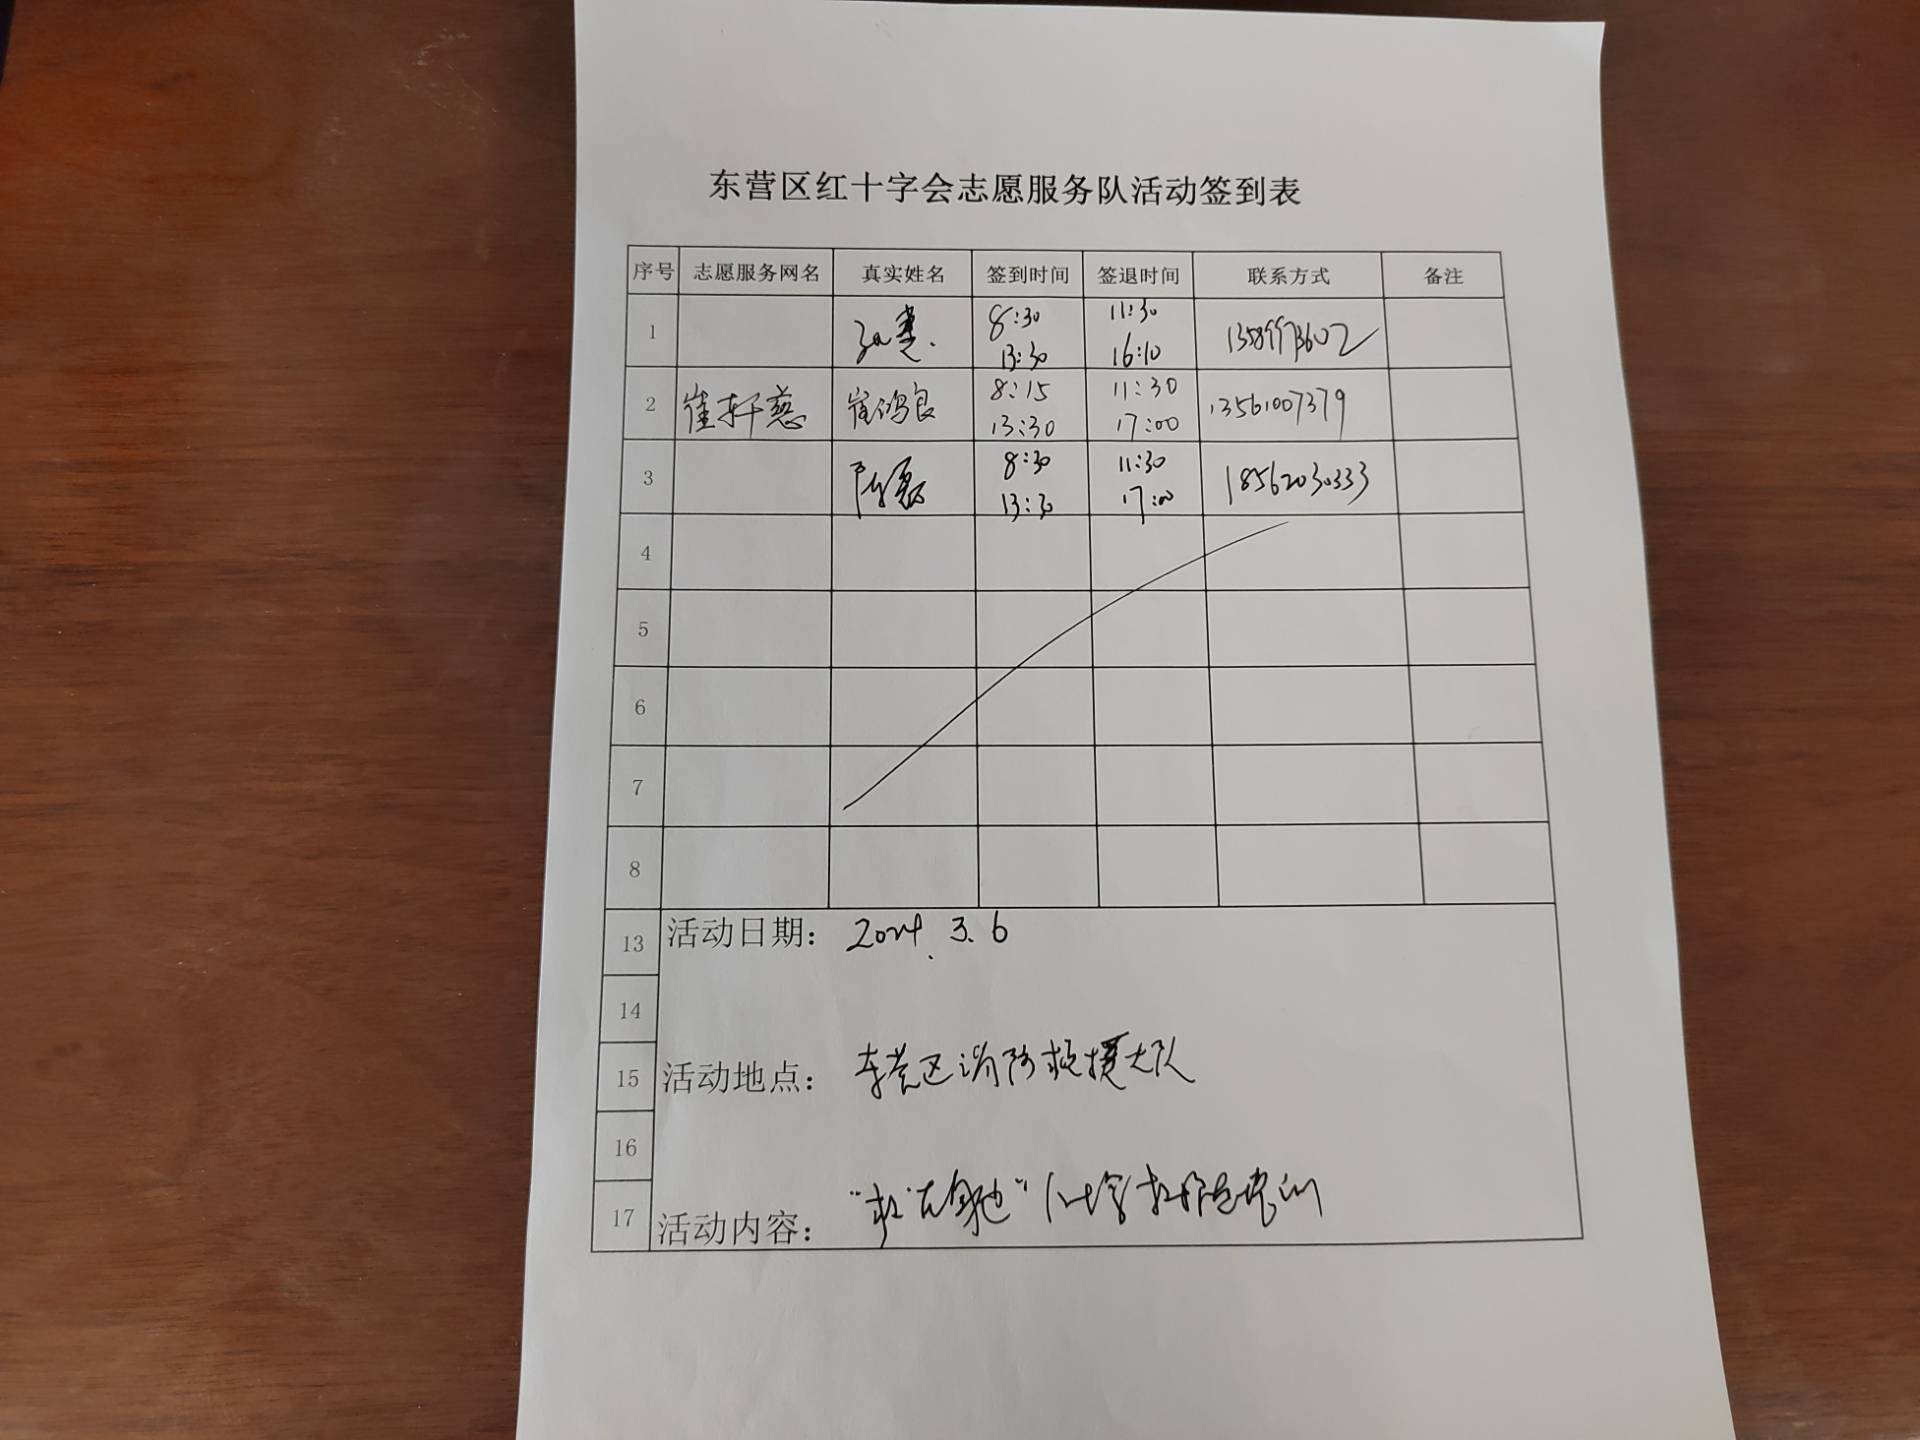 东营区红十字会志愿服务队活动签到表
序号 志愿服务网名 真实姓名 签到时间 签退时间 联系方式 备注
1 8:30 11:30
13:30 16:10
2 崔轩慈 崔鸿良 8:15 11:30 13561007379
13:30 17:00
3 8:30 11:30 18562030333
13:30 17:00
4
5
6
7
8
13 活动日期： 2024.3.6
14
15 活动地点： 东营区消防救援大队
16
17 活动内容：